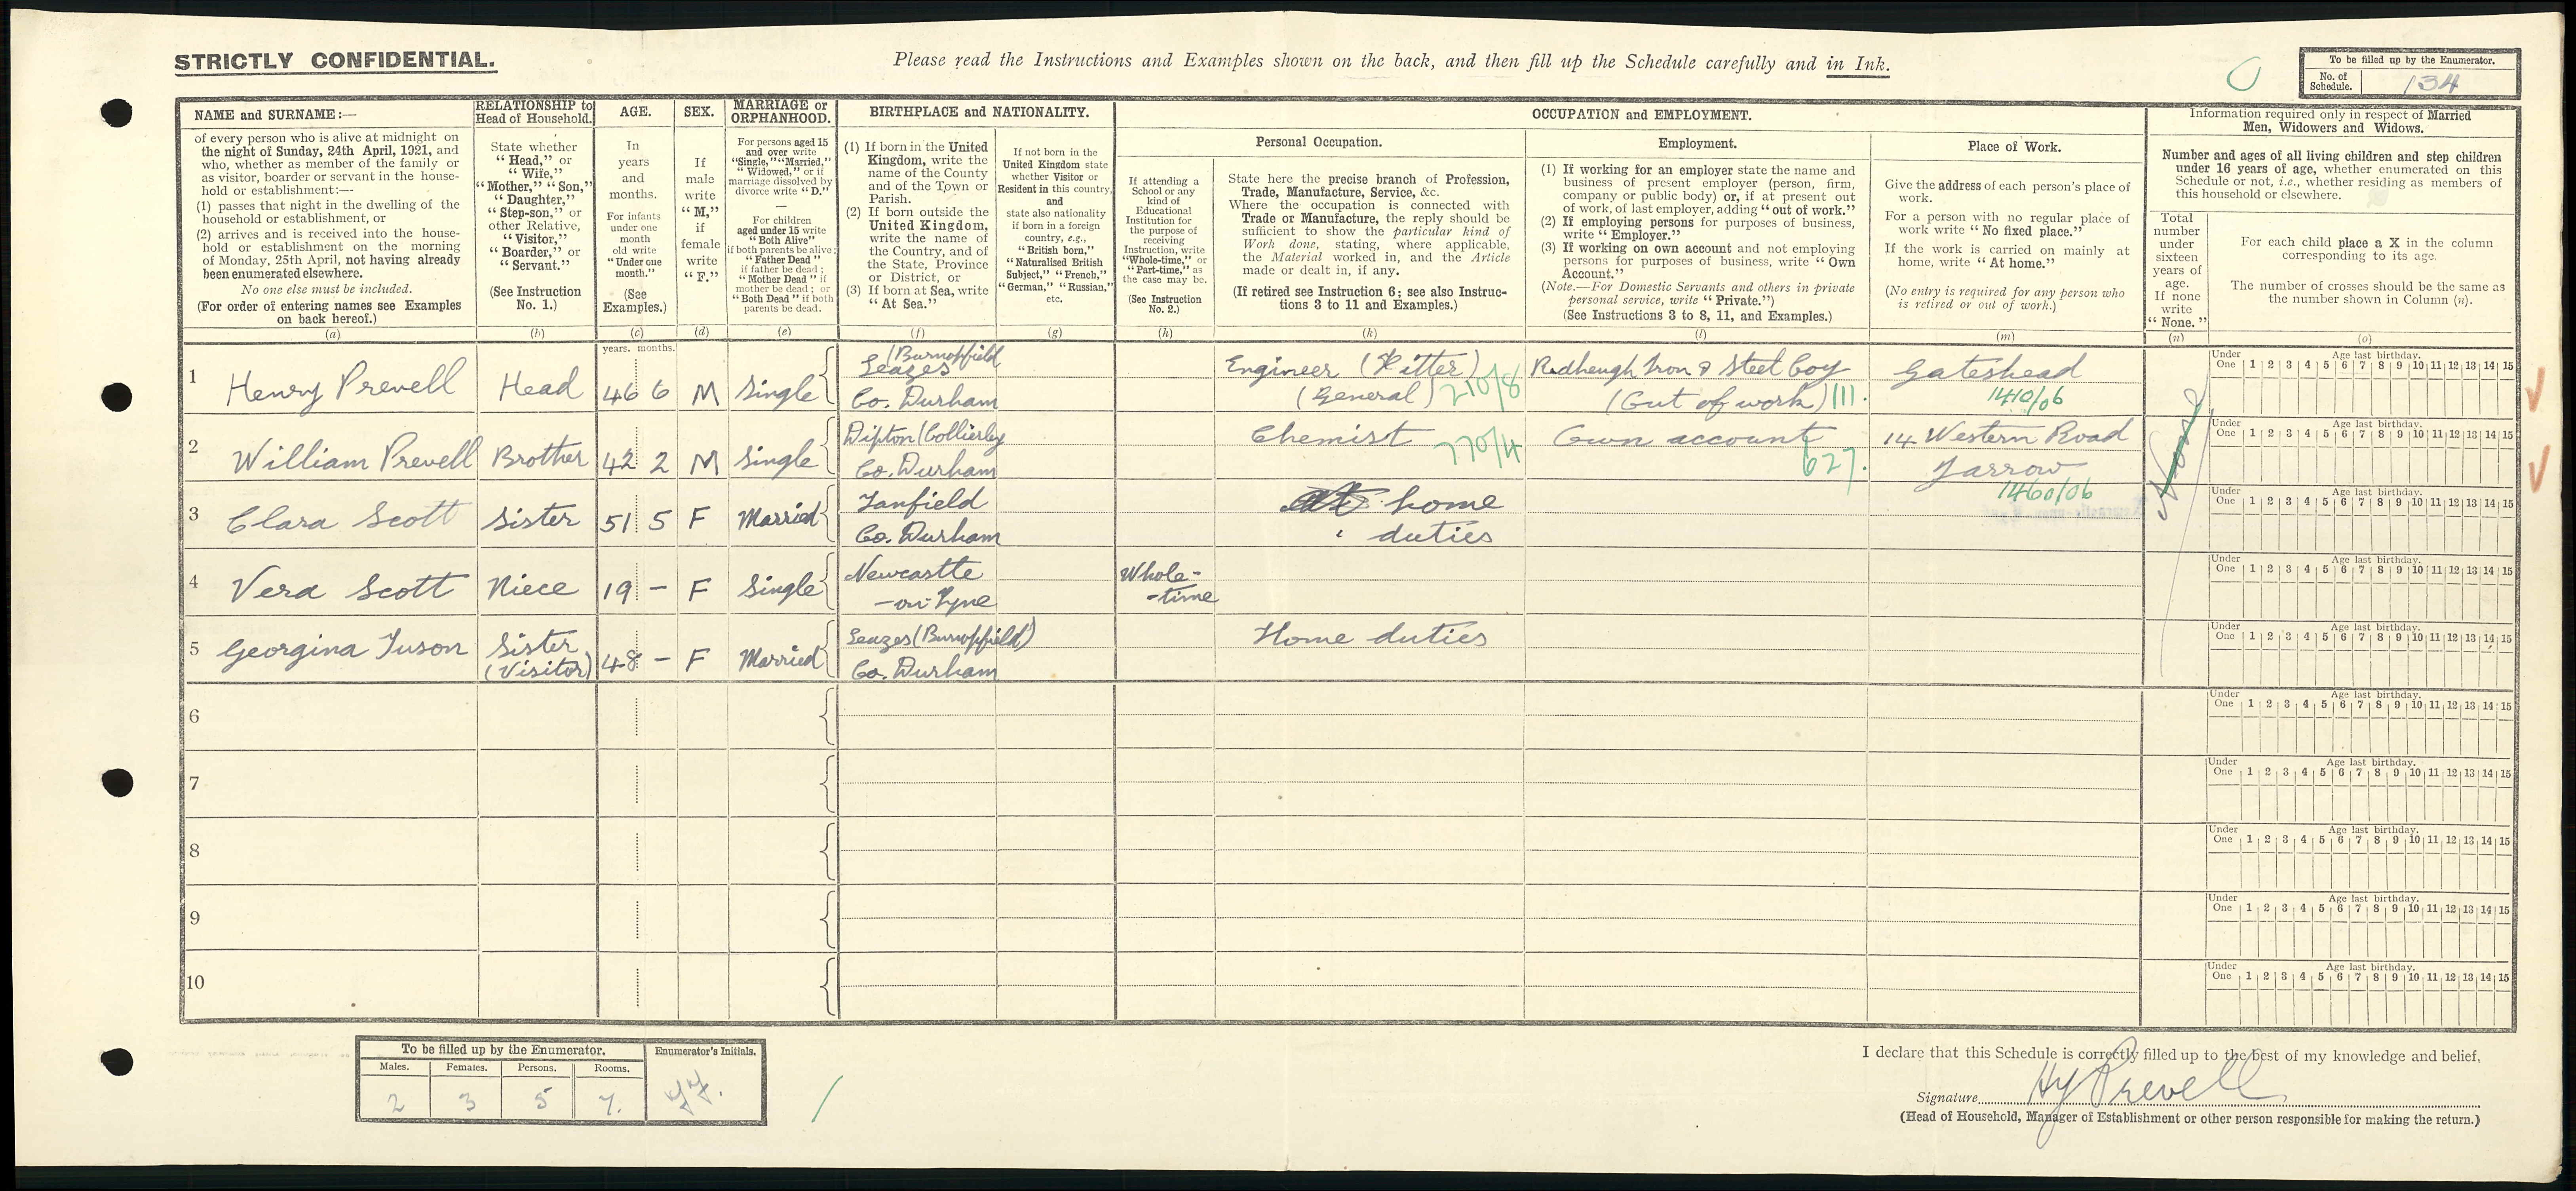 STRICTLY CONFIDENTIAL.
Please read the Instructions and Examples shown on the back, and then fill up the Schedule carefully and in Ink.
To be filled up by the Enumerator.
No. of Schedule. 134
NAME and SURNAME:—
of every person who is alive at midnight on
the night of Sunday, 24th April, 1921, and
who, whether as member of the family or
as visitor, boarder or servant in the house-
hold or establishment:—
(1) passes that night in the dwelling of the
household or establishment, or
(2) arrives and is received into the house-
hold or establishment on the morning
of Monday, 25th April, not having already
been enumerated elsewhere.
No one else must be included.
(For order of entering names see Examples
on back hereof.)
(a)
RELATIONSHIP to
Head of Household.
State whether
"Head," or
"Wife,"
"Mother," "Son,"
"Daughter,"
"Step-son," or
other Relative,
"Visitor,"
"Boarder," or
"Servant."
(See Instruction
No. 1.)
(b)
AGE.
In
years
and
months.
For infants
under one
month
old write
"Under one
month."
(See
Examples.)
(c)
SEX.
If
male
write
"M,"
if
female
write
"F."
(d)
MARRIAGE or
ORPHANHOOD.
For persons aged 15
and over write
"Single," "Married,"
"Widowed," or if
marriage dissolved by
divorce write "D."
—
For children
aged under 15 write
"Both Alive"
if both parents be alive;
"Father Dead"
if father be dead;
"Mother Dead" if
mother be dead; or
"Both Dead" if both
parents be dead.
(e)
BIRTHPLACE and NATIONALITY.
(1) If born in the United
Kingdom, write the
name of the County
and of the Town or
Parish.
(2) If born outside the
United Kingdom,
write the name of
the Country, and of
the State, Province
or District, or
(3) If born at Sea, write
"At Sea."
(f)
If not born in the
United Kingdom state
whether Visitor or
Resident in this country,
and
state also nationality
if born in a foreign
country, e.g.,
"British born,"
"Naturalised British
Subject," "French,"
"German," "Russian,"
etc.
(g)
OCCUPATION and EMPLOYMENT.
If attending a
School or any
kind of
Educational
Institution for
the purpose of
receiving
Instruction, write
"Whole-time," or
"Part-time," as
the case may be.
(See Instruction
No. 2.)
(h)
Personal Occupation.
State here the precise branch of Profession,
Trade, Manufacture, Service, &c.
Where the occupation is connected with
Trade or Manufacture, the reply should be
sufficient to show the particular kind of
Work done, stating, where applicable,
the Material worked in, and the Article
made or dealt in, if any.
(If retired see Instruction 6; see also Instruc-
tions 3 to 11 and Examples.)
(k)
Employment.
(1) If working for an employer state the name and
business of present employer (person, firm,
company or public body) or, if at present out
of work, of last employer, adding "out of work."
(2) If employing persons for purposes of business,
write "Employer."
(3) If working on own account and not employing
persons for purposes of business, write "Own
Account."
(Note.—For Domestic Servants and others in private
personal service, write "Private.")
(See Instructions 3 to 8, 11, and Examples.)
(l)
Place of Work.
Give the address of each person's place of
work.
For a person with no regular place of
work write "No fixed place."
If the work is carried on mainly at
home, write "At home."
(No entry is required for any person who
is retired or out of work.)
(m)
Information required only in respect of Married
Men, Widowers and Widows.
Number and ages of all living children and step children
under 16 years of age, whether enumerated on this
Schedule or not, i.e., whether residing as members of
this household or elsewhere.
Total
number
under
sixteen
years of
age.
If none
write
"None."
(n)
For each child place a X in the column
corresponding to its age.
The number of crosses should be the same as
the number shown in Column (n).
(o)
years. months.
1 Henry Prevell Head 46 6 M Single Leazes (Burnopfield Co. Durham Engineer (Fitter) (General) 210/8 Redheugh Iron & Steel Coy (Out of work) 111. Gateshead 1410/06
Under One Age last birthday. 1 2 3 4 5 6 7 8 9 10 11 12 13 14 15
2 William Prevell Brother 42 2 M Single Dipton (Collierley Co. Durham Chemist 770/4 Own account 627. 14 Western Road Jarrow 1460/06 None
Under One Age last birthday. 1 2 3 4 5 6 7 8 9 10 11 12 13 14 15
3 Clara Scott Sister 51 5 F Married Tanfield Co. Durham home duties
Under One Age last birthday. 1 2 3 4 5 6 7 8 9 10 11 12 13 14 15
4 Vera Scott Niece 19 – F Single Newcastle -on-Tyne Whole- -time
Under One Age last birthday. 1 2 3 4 5 6 7 8 9 10 11 12 13 14 15
5 Georgina Tuson Sister (Visitor) 48 – F Married Leazes (Burnopfield) Co. Durham Home duties
Under One Age last birthday. 1 2 3 4 5 6 7 8 9 10 11 12 13 14 15
6
Under One Age last birthday. 1 2 3 4 5 6 7 8 9 10 11 12 13 14 15
7
Under One Age last birthday. 1 2 3 4 5 6 7 8 9 10 11 12 13 14 15
8
Under One Age last birthday. 1 2 3 4 5 6 7 8 9 10 11 12 13 14 15
9
Under One Age last birthday. 1 2 3 4 5 6 7 8 9 10 11 12 13 14 15
10
Under One Age last birthday. 1 2 3 4 5 6 7 8 9 10 11 12 13 14 15
To be filled up by the Enumerator.
Males. Females. Persons. Rooms.
2 3 5 7.
Enumerator's Initials.
I declare that this Schedule is correctly filled up to the best of my knowledge and belief,
Signature Hy Prevell
(Head of Household, Manager of Establishment or other person responsible for making the return.)